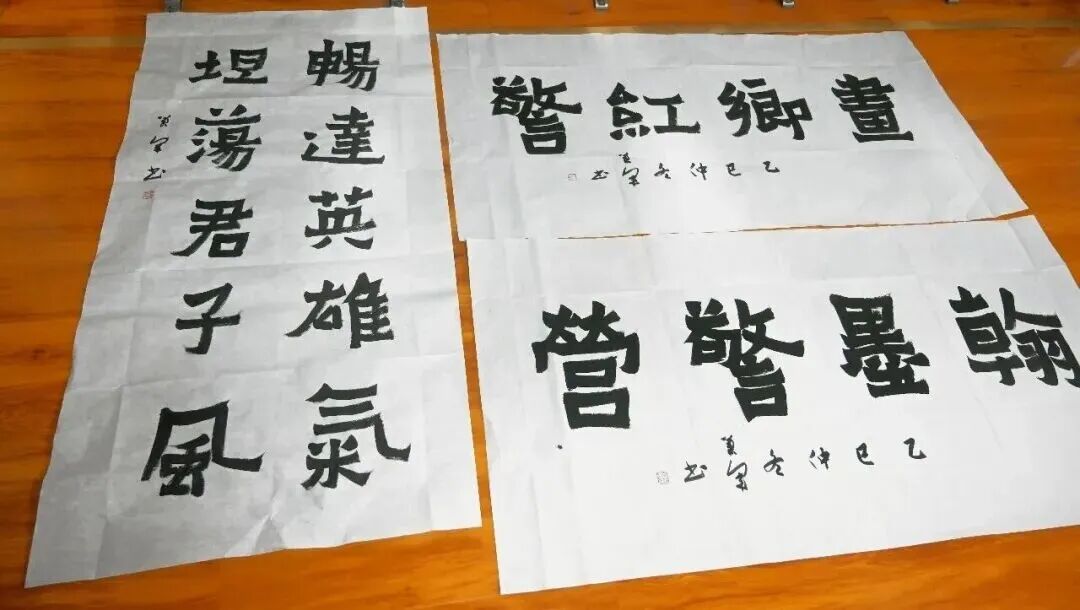 暢達英雄氣
坦蕩君子風
書
畫鄉紅警
乙巳仲冬
書
翰墨警營
乙巳仲冬
書